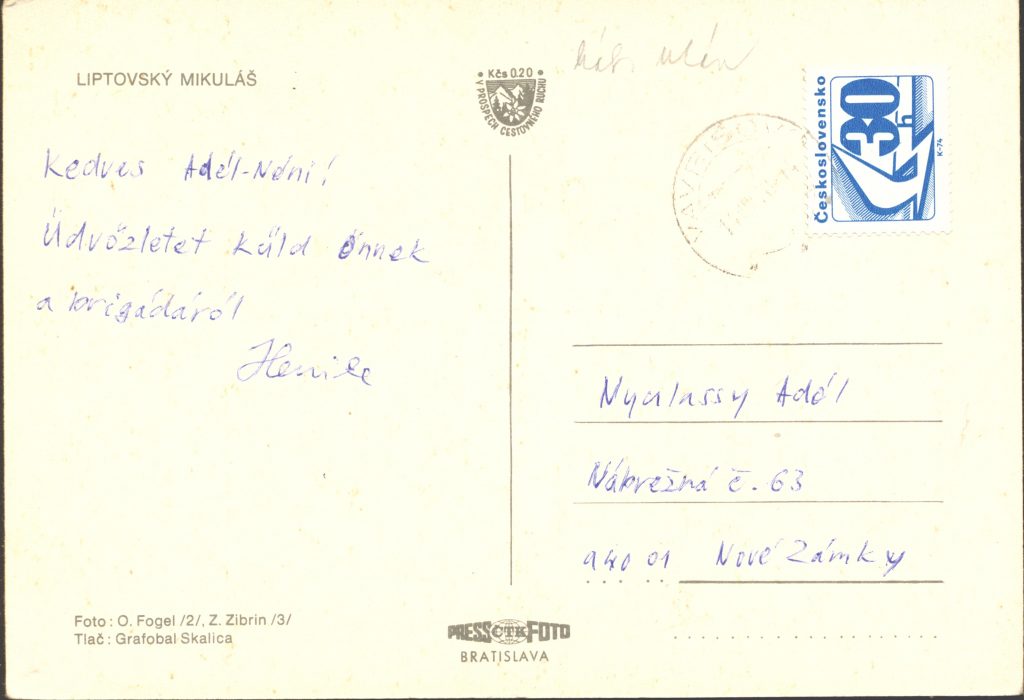 LIPTOVSKÝ MIKULÁŠ
Kčs 0.20
V PROSPECH CESTOVNÉHO RUCHU
Kedves Adél-Néni!
Üdvözletet küld Önnek
a brigádáról
Československo
30
h
K-74
Nyalassy Adél
Nábrežná č. 63
940 01 Nové Zámky
Foto: O. Fogel /2/, Z. Zibrin /3/
Tlač: Grafobal Skalica
PRESS ČTK FOTO
BRATISLAVA